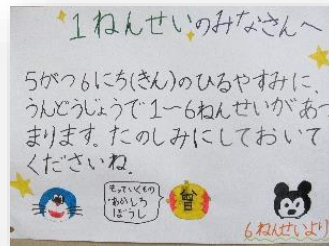 1ねんせいのみなさんへ
5がつ6にち(きん)のひるやすみに、
うんどうじょうで1〜6ねんせいがあつ
まります。たのしみにしておいて
くださいね。
もっていくもの
あかしろ
ぼうし
6ねんせいより